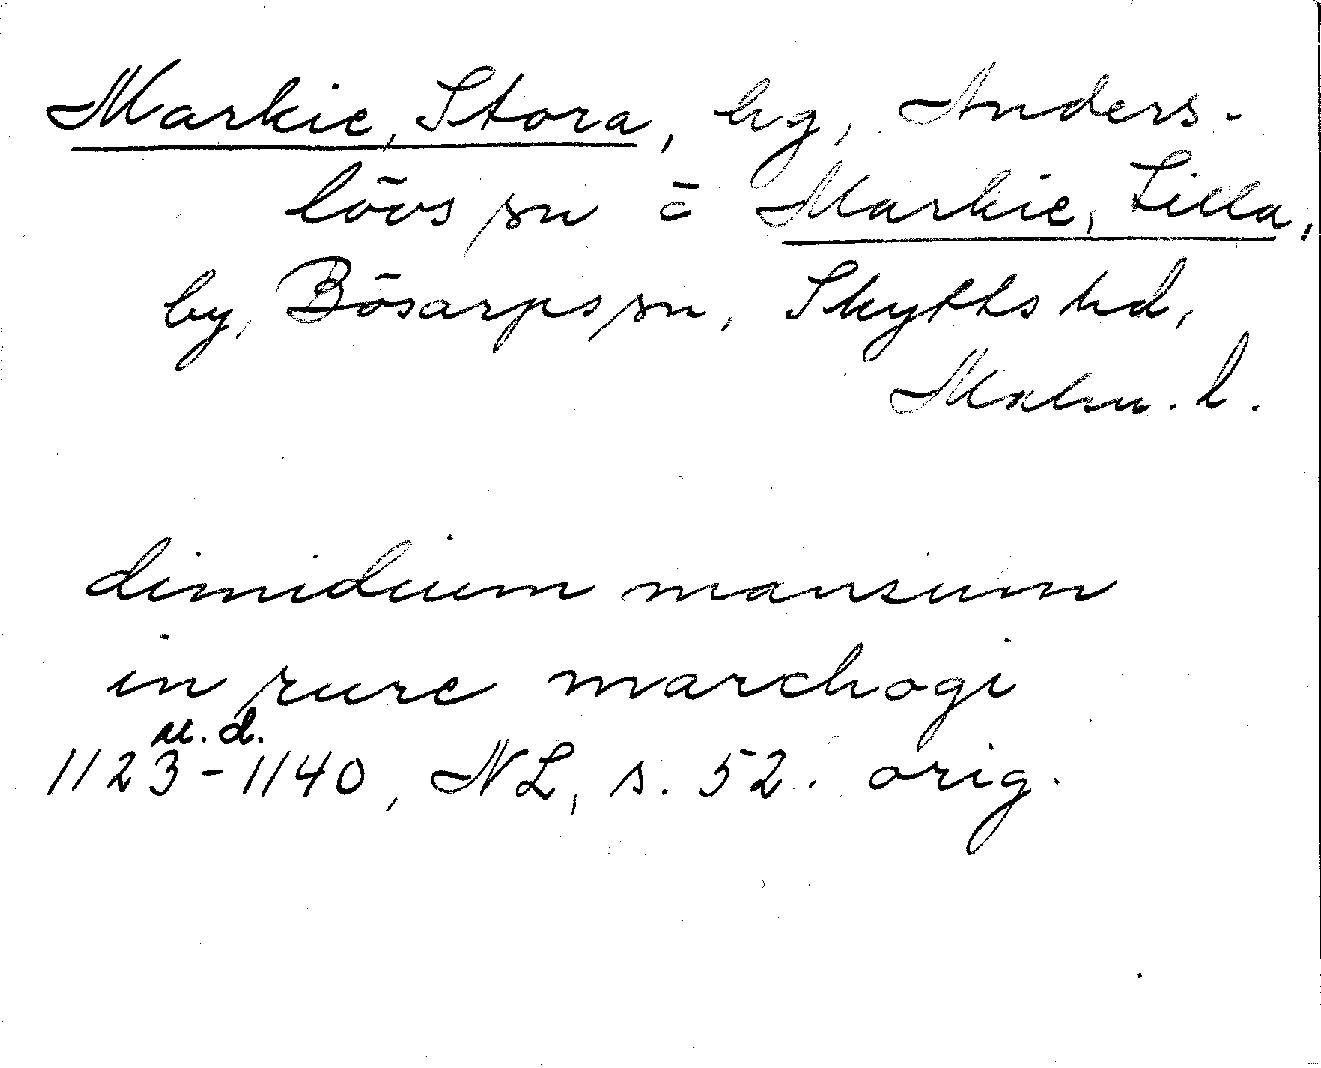 Markie, Stora, by, Anders-
lövs sn o Markie, Lilla,
by, Bösarps sn, Skytts hd,
Malm. l.
dimidium mansum
in rure marchogi
u.d.
1123-1140, NL, s. 52. orig.